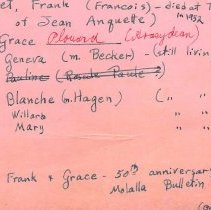 et, Frank (Francois) - died at T
of Jean Anquette) in 1952
Grace Plouard (Grosjdean)
Geneva (m. Becker) - (still livin
Pauline (Rosale Paule ?)
Blanche (m. Hagen) ( " "
Willard
Mary ( " "
Frank & Grace - 50th anniversar
Molalla Bulletin